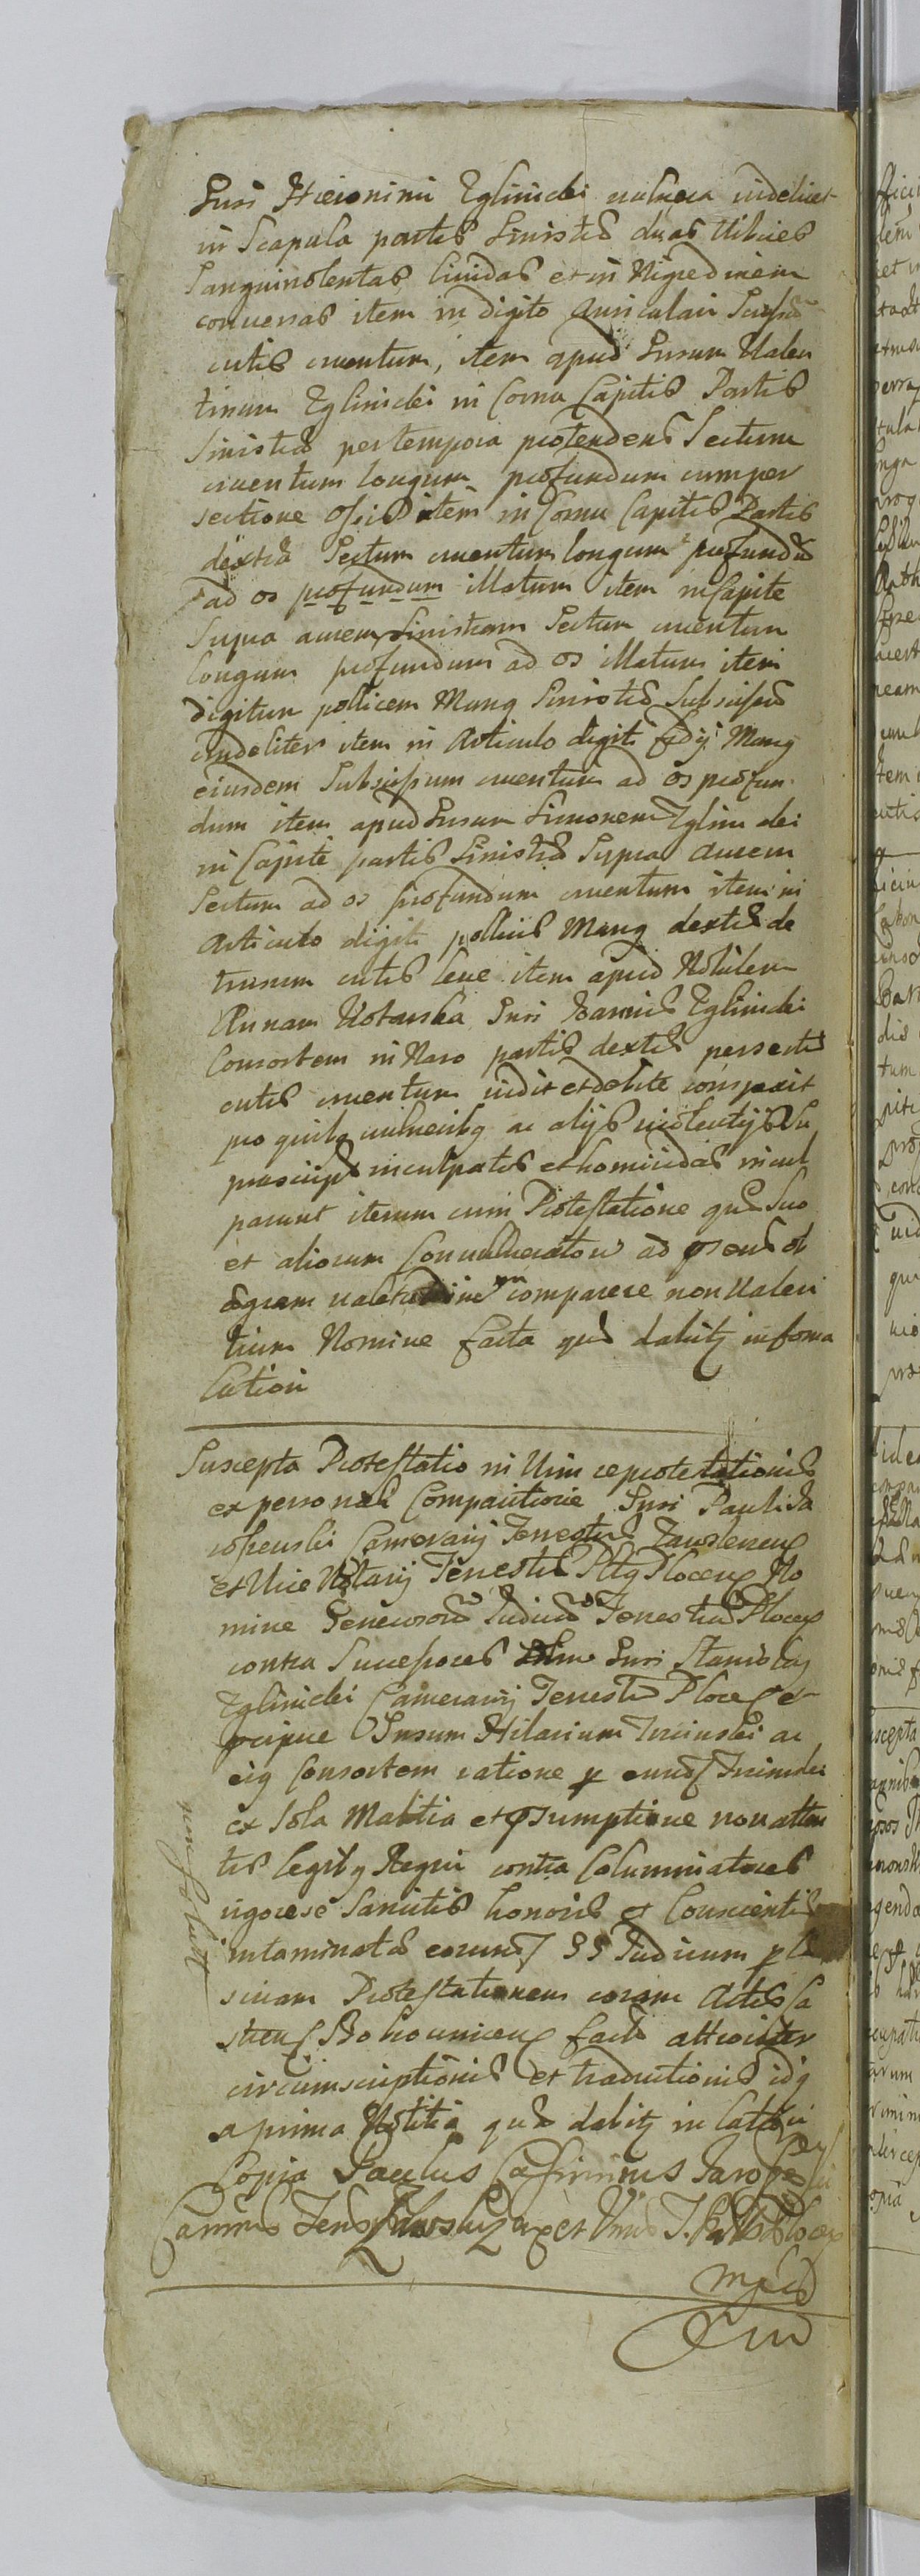 Gnsi Hieronimi Eglinicki vulnera videlicet
in Scapula partis Sinistrae duas Vibices
Sanguinolentas lividas et in Nigredinem
conversas item in digito Auriculari
cutis cruentum, item apud Gnsum Valen
tinum Eglinicki in Cornu Capitis Partis
Sinistrae per tempora protendens Sectum
cruentum longum profundum cum per
sectione ossis item in Cornu Capitis Partis
dextra Sectum cruentum longum profundu
ad os profundum illatum item in Capite
Supra aurem Sinistram Sectum cruentum
longum profundum ad os illatum item
digitum pollicem Manus Sinistrae Subscissum
crudeliter item in Articulo digiti Manus
eiusdem Subscissum cruentum ad os profun
dum item apud Gnsum Simonem Eglinicki
in Capite partis Sinistrae Supra Aurem
Sectum ad os profundum cruentum item in
Articulo digiti pollicis Manus dextrae de
trusum cutis leve item apud Nobilem
Annam Gnsi Eglinicki
Consortem in Naso partis dextrae persectu
cutis cruentum vidit et debite conspexit
pro quibq vulneribq ac alijs violentijs Su
prascripts inculpatos et homicidas incul
parunt iterum cum Protestatione que Suo
et aliorum Convulneratoru ad ob
aegram valetudinem comparere non Valen
tium Nomine facta que dabitq in forma
Lation
Suscepta Protestatio in Vim reprotestationis
ex personali Comparitione Gnsi Pauli Ja
rossewski Camerarij Terrestris Zawskrenq
et Vice Notarij Terestris Pltq Plocenq No
mine Generosoru Judicu Terrestriu Plocen
contra Successores olim Gnsi Stanislaj
Eglinicki Camerarij Terrestris Plocen et
pcipue Gnsum Hilarium ac
eiq Consortem ratione p eund
ex Sola Malitia et psumptione non atten
tis legibq Regni contra Calumniatores
rigorese Sancitis honoris et Conscientiae
intaminatae eorund SS Judicum p la
sivam Protestationem coram Actis Ca
stren Bobrounicen factae
circumscriptionis et traductionis idq
a prima Notitia que dabitq in Lation
Copia Paulus Casimirus Jarossewski
Camrius Ters Zawskrzen et Vnrius T. Plocen
mpria